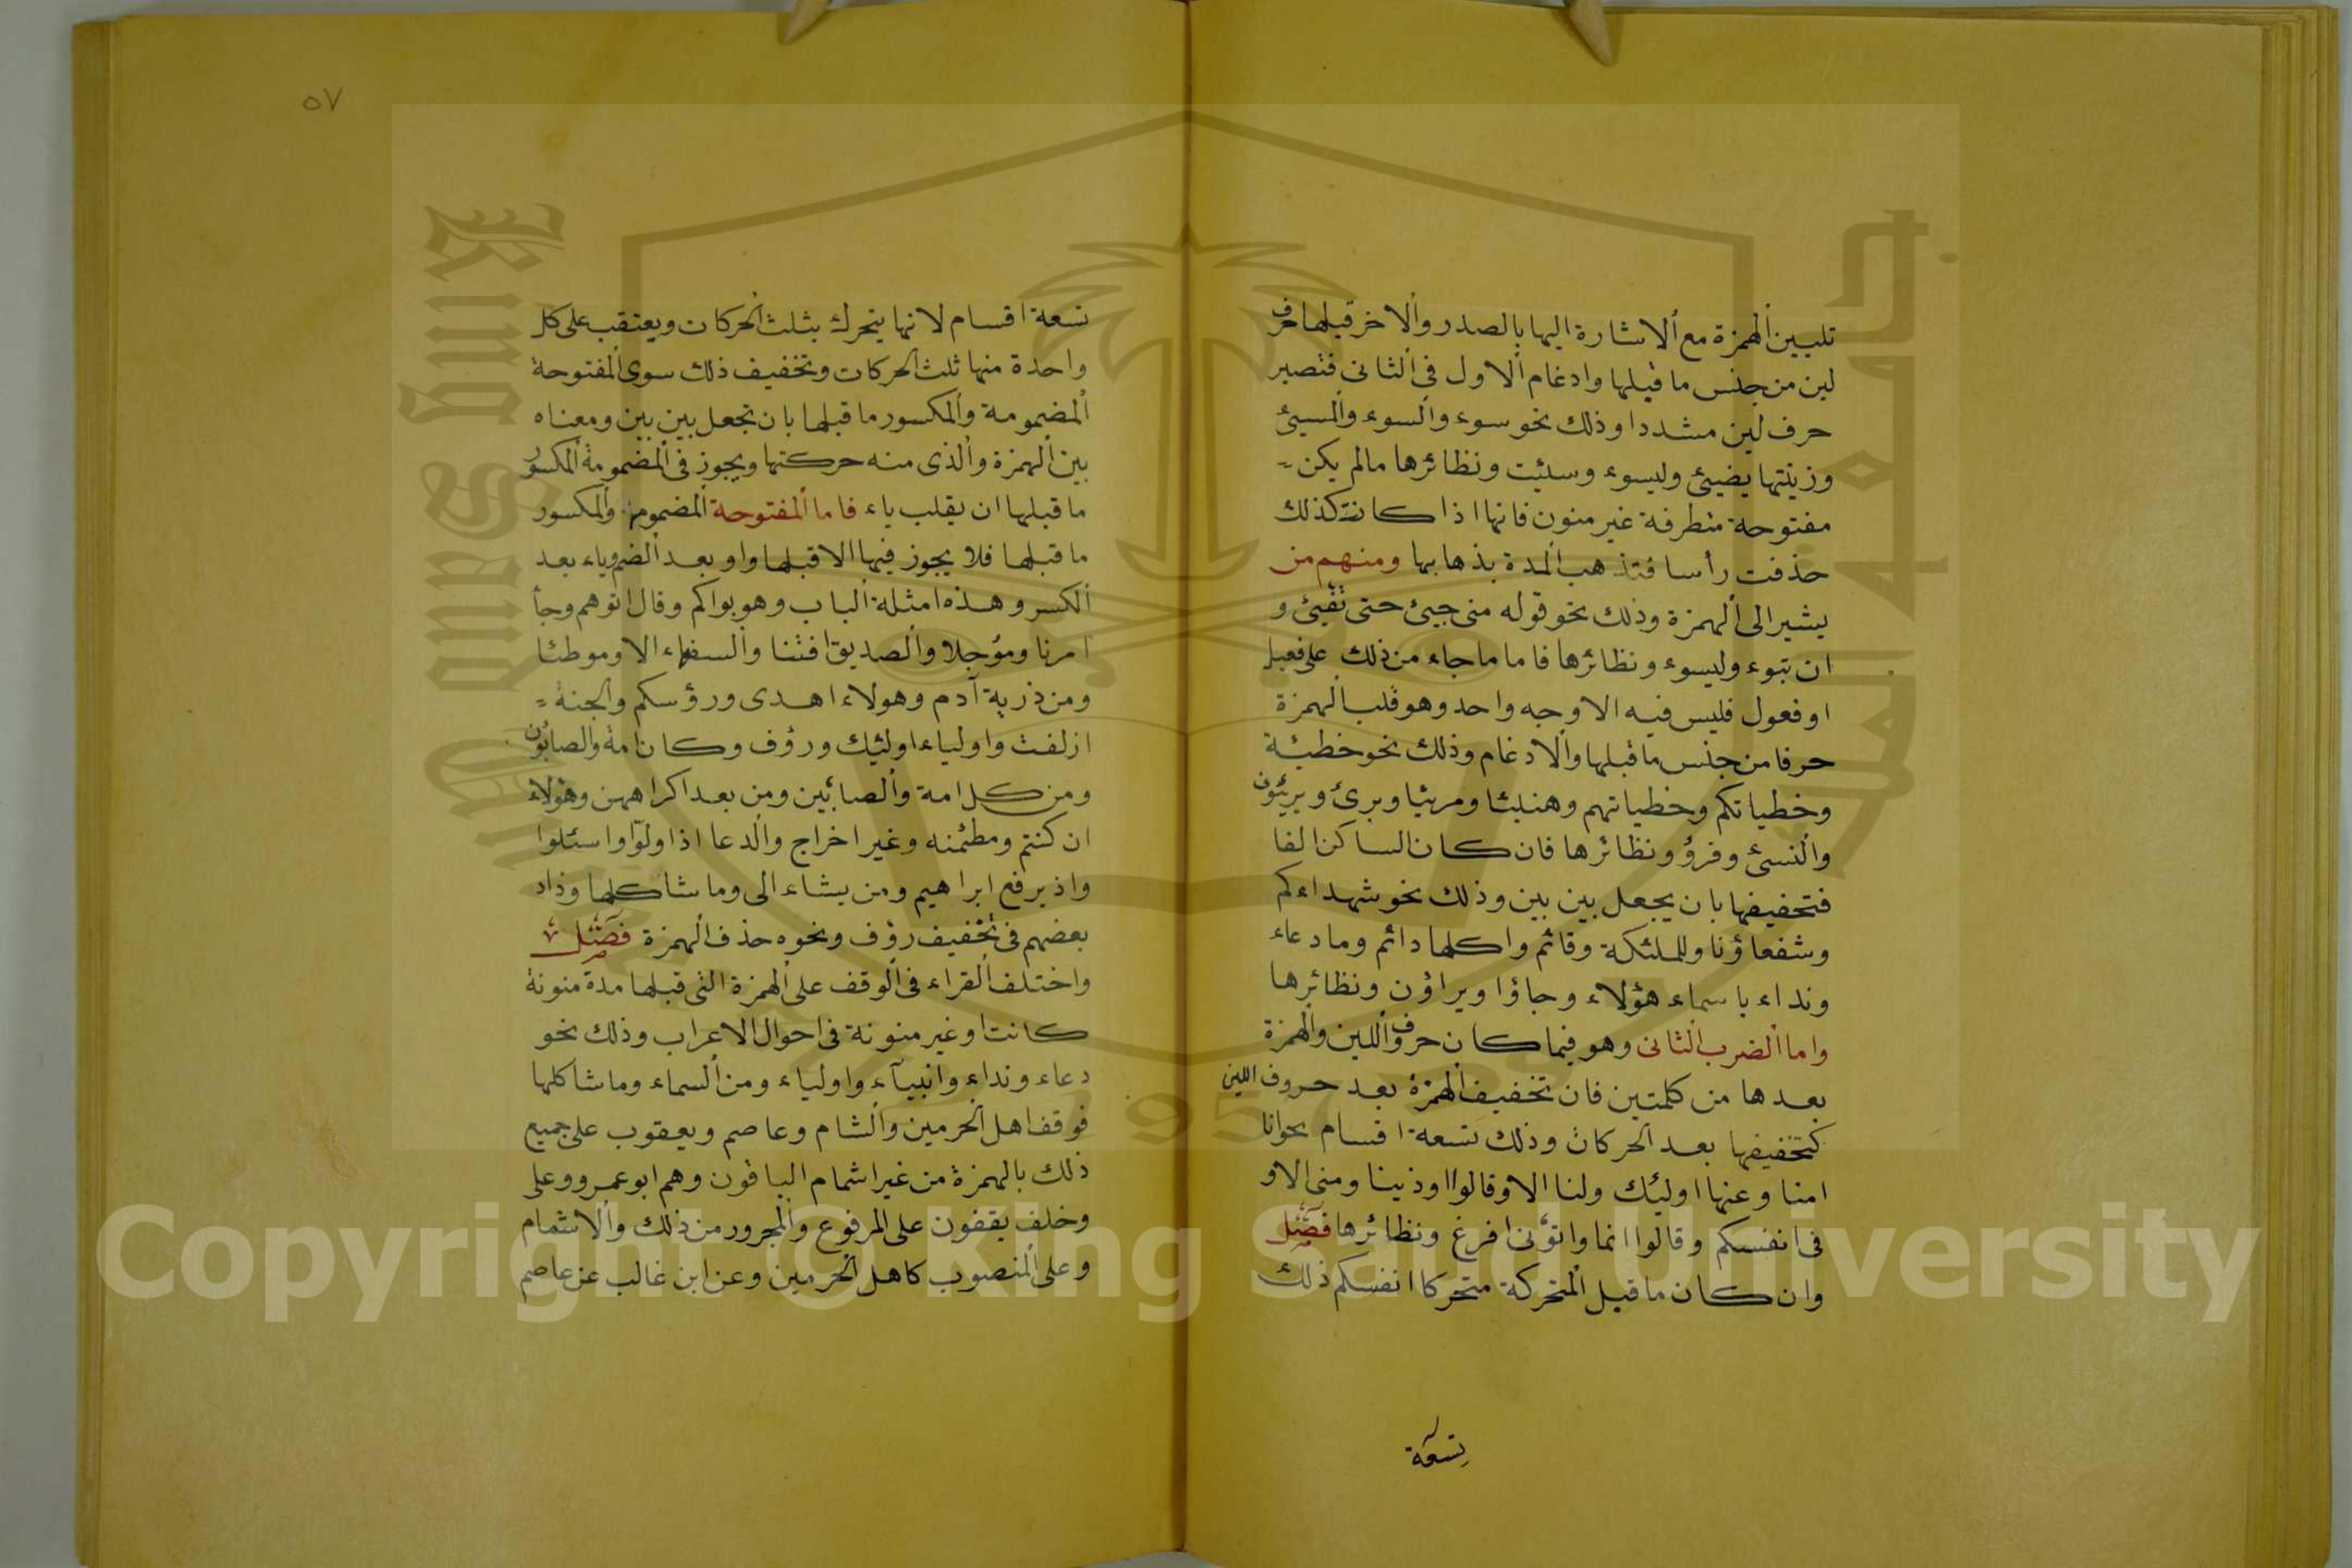 تليين ألهمزة مع ألاشارة اليها بالصدر وألاخر قبلها حرف
لين من جنس ما قبلها وادغام ألاول في ألثاني فتصير
حرف لين مشددا وذلك نحو سوء وألسوء وألمسيئ
وزينتها يضيئ وليسوء وسيئت ونظائرها مالم يكن
مفتوحة متطرفة غير منون فانها اذا كانت كذلك
حذفت رأسا فتذهب ألمدة بذهابها ومنهم من
يشير الى ألهمزة وذلك نحو قوله من جيئ حتى تفيئ و
ان تبوء وليسوء ونظائرها فاما ما جاء من ذلك على فعيل
او فعول فليس فيه الا وجه واحد وهو قلب ألهمزة
حرفا من جنس ما قبلها وألادغام وذلك نحو خطيئة
وخطياتكم وخطياتهم وهنيئا ومريئا وبرئ وبريئون
وألنسئ وقرؤ ونظائرها فان كان الساكن الفا
فتخفيفها بان يجعل بين بين وذلك نحو شهداءكم
وشفعاؤنا وللملئكة وقائم واكلها دائم وما دعاء
ونداء باسماء هؤلاء وجاؤا ويراؤن ونظائرها
واما ألضرب ألثاني وهو فيما كان حرف أللين وألهمزة
بعدها من كلمتين فان تخفيف ألهمزة بعد حروف اللين
كتخفيفها بعد ألحركات وذلك تسعة اقسام
امنا وعنها اوليئك ولنا الا وقالوا اوذينا ومنى الا و
في انفسكم وقالوا انما واتوني افرغ ونظائرها فصل
وان كان ما قبل ألمتحركة متحركا انفسكم ذلك
تسعة
٥٧
تسعة اقسام لانها يتحرك بثلث ألحركات ويعتقب على كل
واحدة منها ثلث ألحركات وتخفيف ذلك سوى ألمفتوحة
ألمضمومة وألمكسور ما قبلها بان تجعل بين بين ومعناه
بين ألهمزة وألذى منه حركتها ويجوز في ألمضمومة ألمكسور
ما قبلها ان يقلب ياء فاما ألمفتوحة ألمضموم وألمكسور
ما قبلها فلا يجوز فيها الا قبلها واو بعد ألضم وياء بعد
ألكسر وهذه امثلة ألباب وهو بواكم وقال اتوهم وجأ
امرنا ومؤجلا وألصديق افتنا وألسفهاء الا وموطئا
ومن ذرية آدم وهولاء اهدى ورؤسكم وألجنة
ازلفت واولياء اوليئك ورؤف وكان امة والصابؤن
ومن كل امة وألصابئين ومن بعد اكراههن وهؤلاء
ان كنتم ومطئمنه وغير اخراج وألدعا اذا ولوا واسئلوا
واذ يرفع ابراهيم ومن يشاء الى وما شاكلها وزاد
بعضهم في تخفيف رؤف ونحوه حذف ألهمزة فصل
واختلف ألقراء في ألوقف على ألهمزة التي قبلها مدة منونة
كانت او غير منونة في احوال الاعراب وذلك نحو
دعاء ونداء وانبيآء واولياء ومن ألسماء وما شاكلها
فوقف اهل ألحرمين وألشام وعاصم ويعقوب على جميع
ذلك بالهمزة من غير اشمام الباقون وهم ابو عمرو وعلى
وخلف يقفون على المرفوع وألمجرور من ذلك وألاشمام
وعلى ألمنصوب كاهل ألحرمين وعن ابن غالب عن عاصم
Copyright © King Saud University
King Saud University
1957